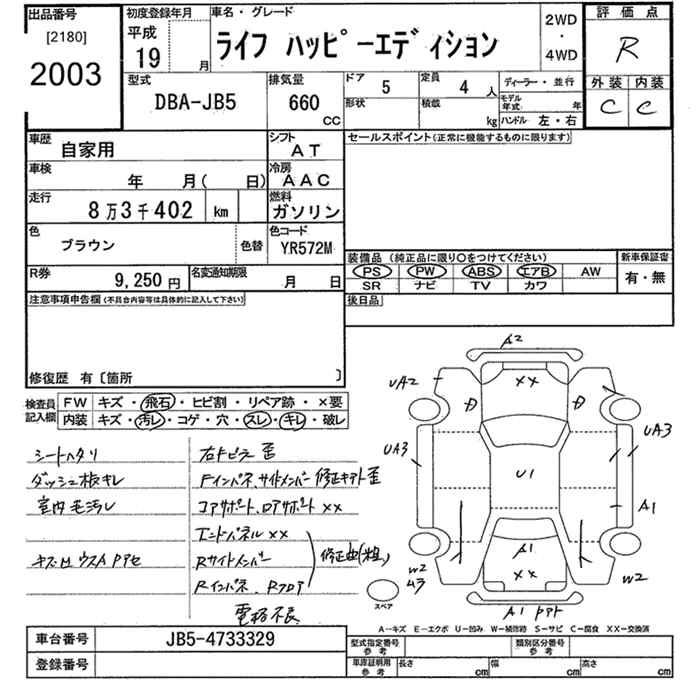 出品番号
[2180]
2003
初度登録年月
平成
19 月
車名・グレード
ライフ ハッピーエディション
2WD
・
4WD
評価点
R
外装 内装
C C
型式
DBA-JB5
排気量
660
CC
ドア 5
形状
定員 4 人
積載 kg
ディーラー・並行
モデル年式 年
ハンドル 左・右
車歴
自家用
シフト
AT
車検
年 月( 日)
冷房
AAC
走行
8万3千402 km
燃料
ガソリン
色
ブラウン
色替
色コード
YR572M
R券
9,250 円
名変通知期限
月 日
セールスポイント(正常に機能するものに限ります)
装備品 (純正品に限り〇をつけてください)
PS PW ABS エアB AW
SR ナビ TV カワ
新車保証書
有・無
後日品
注意事項申告欄(不具合内容等は具体的に記入して下さい)
修復歴 有〔箇所 〕
検査員
記入欄
FW キズ・飛石・ヒビ割・リペア跡・×要
内装 キズ・汚レ・コゲ・穴・スレ・キレ・破レ
シートヘタリ
ダッシュ板キレ
室内毛汚レ
右トビラ 歪
Fインパネ、サイドメンバー 修正キアト歪
コアサポート、ロアサポート ××
エンドパネル ××
Rサイドメンバー
Rインパネ、Rフロア
修正曲(粗)
A2
××
UA2
UA3
UA3
U1
A1
A1
××
W2
43
W2
A1
スペア
A-キズ E-エクボ U-凹み W-補修跡 S-サビ C-腐食 XX-交換済
車台番号
JB5-4733329
登録番号
型式指定番号
参考
類別区分番号
参考
車庫証明用
参考
長さ cm
幅 cm
高さ cm